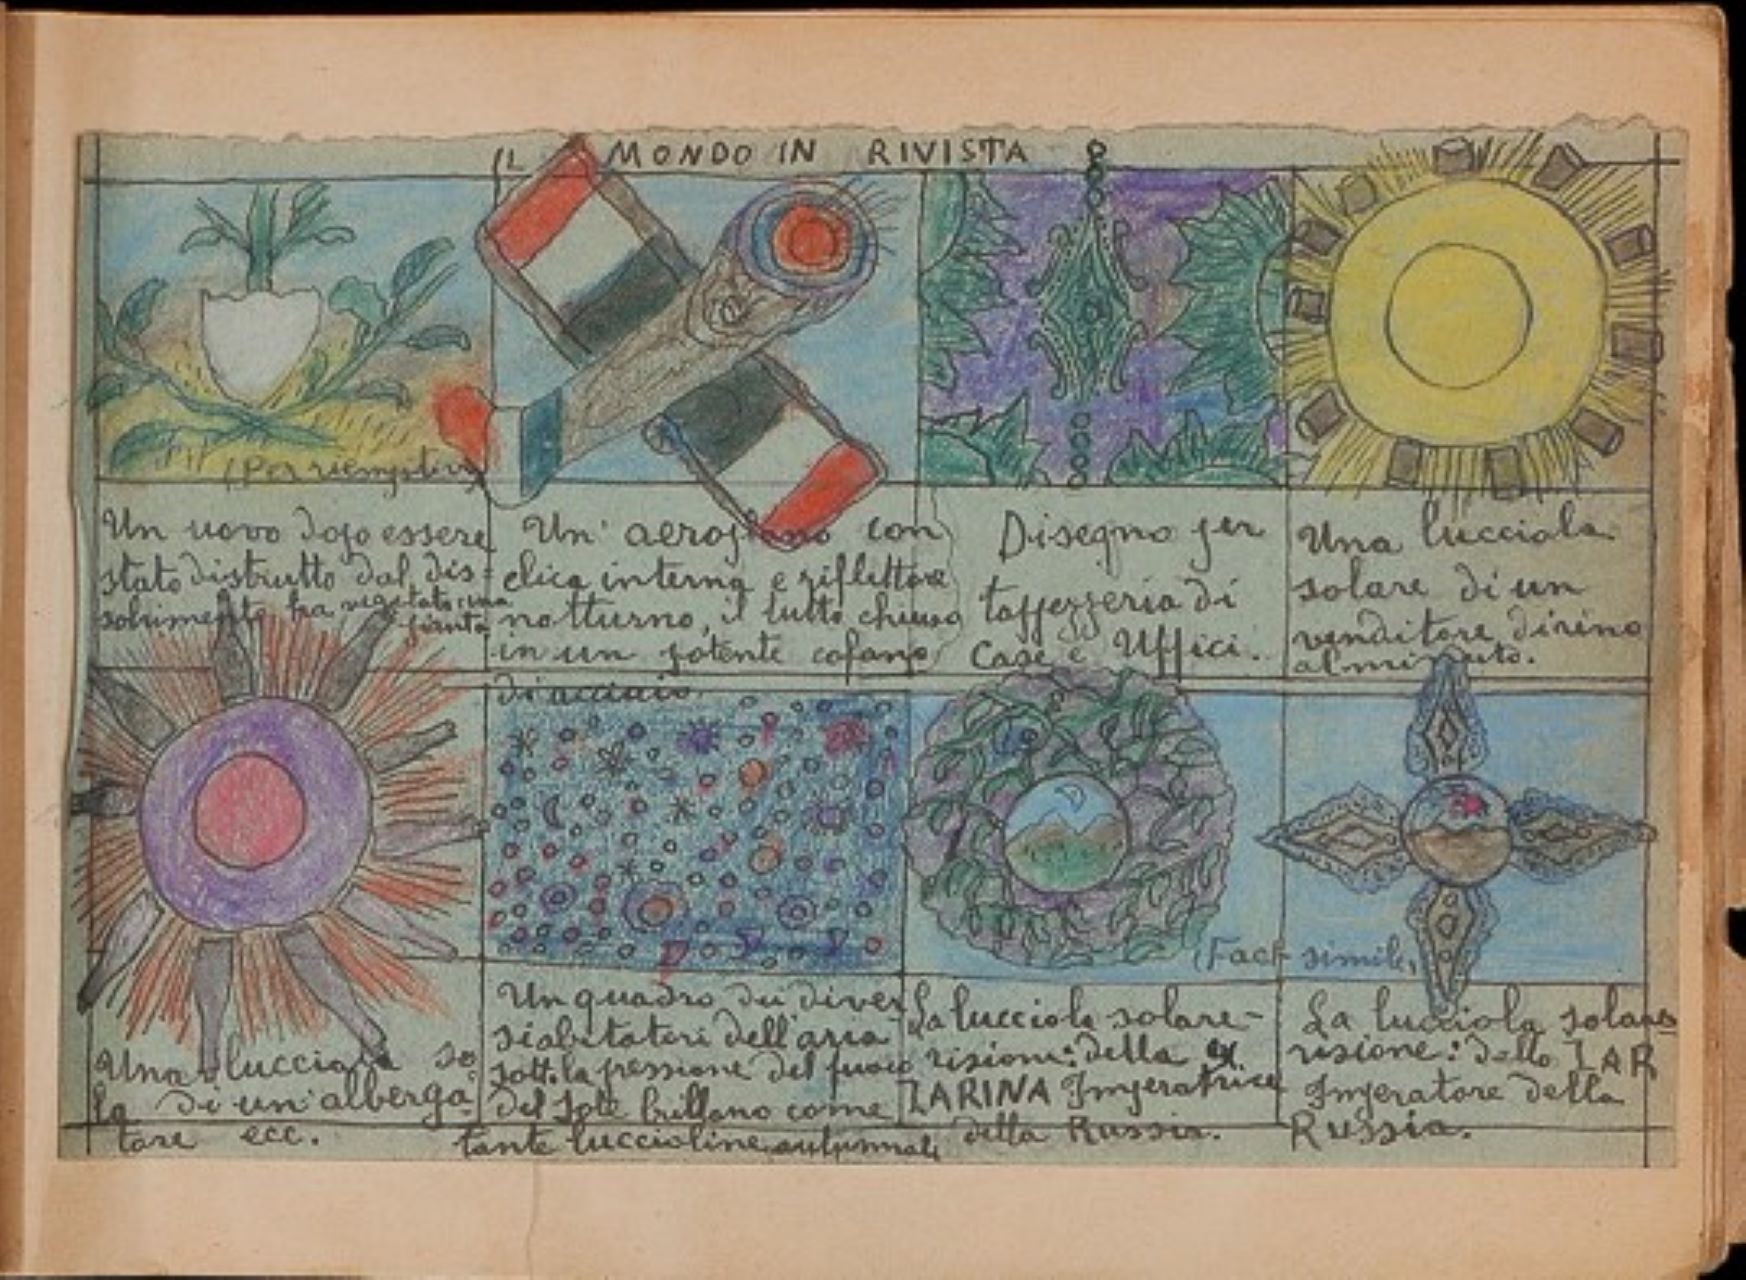 IL MONDO IN RIVISTA
(Per riempitivo)
Un uovo dopo essere
stato distrutto dal dis-
solvimento ha vegetato una
pianta
Un' aeroplano con
elica interna e riflettore
notturno, il tutto chiuso
in un potente cofano
di acciaio.
Disegno per
tappezzeria di
Case e Uffici.
Una lucciola
solare di un
venditore di vino
al minuto.
Una lucciola so
la di un'alberga
tore ecc.
Un quadro dei diver
si abitatori dell'aria
sotto la pressione del fuoco
del Sole brillano come
tante luccioline autunnali
La lucciola solare-
visione: della ex
ZARINA Imperatrice
della Russia.
(Fact simile,
La lucciola solare
visione: dello ZAR
Imperatore della
Russia.